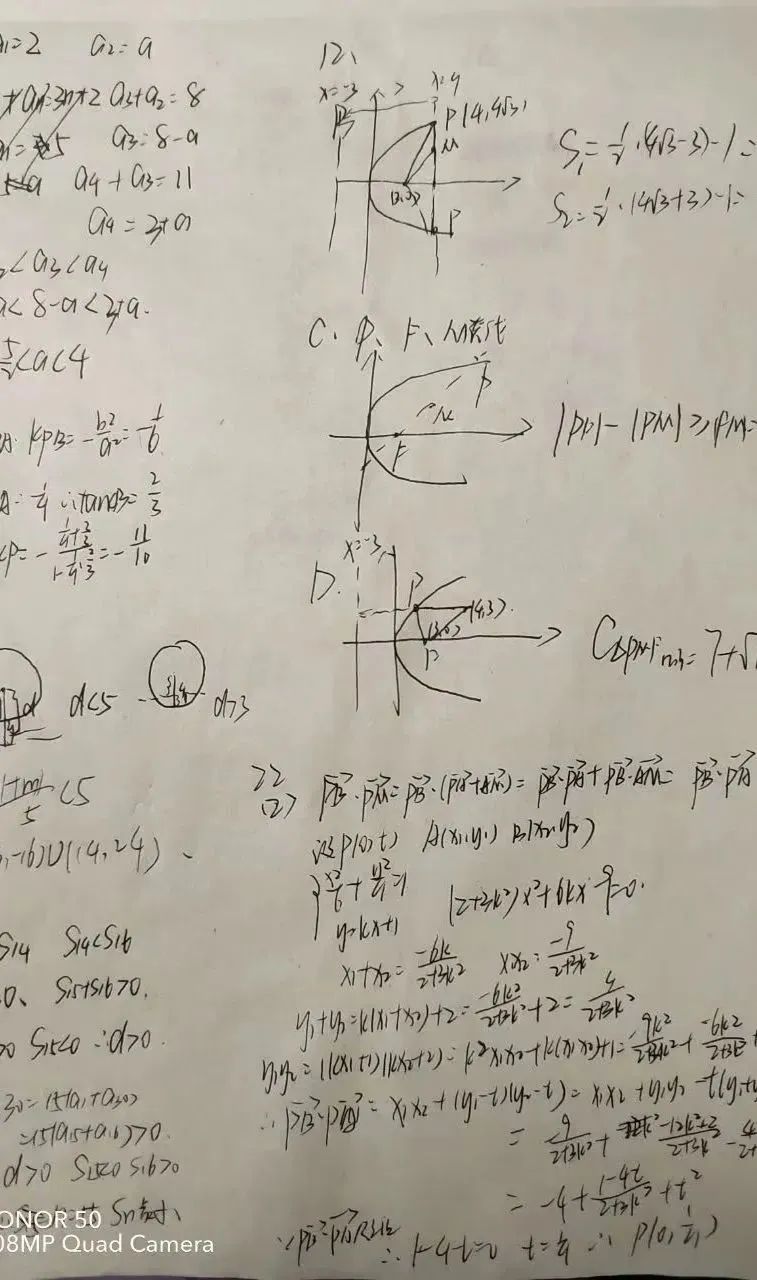 a₁=2 a₂=a
a₃+a₂=8
a₃=8-a
a₄+a₃=11
a₄=3+a
<a₃<a₄
a<8-a<3+a.
5/2<a<4
k_PB=-b²/a²=-1/6
1/4 ∴tanB=2/3
=-11/10
d<5 d>3
<5
-16)∪(14,24)、
S₁₄ S₁₄<S₁₆
S₁₅+S₁₆>0.
S₁₅<0 ∴d>0.
=15(a₁+a₃₀)
=15(a₁₅+a₁₆)>0.
d>0 S₁₅<0 S₁₆>0
12、
x=-3 x=4
P(4,4√3)
M
P
S₁=1/2·(4√3-3)·1=
S₂=1/2·(4√3+3)·1=
C、P、F、M共线
P
M
F
x=-3
D.
P
(4,3).
(3,0)
F
C△PMF min=7+√
22
(2) PB·PM=PB·(PA+AM)=PB·PA+PB·AM=PB·PA
设P(0,t) A(x₁,y₁) B(x₂,y₂)
{x²/6+y²/4=1
y=kx+1
(2+3k²)x²+6kx-9=0.
x₁+x₂=-6k/(2+3k²) x₁x₂=-9/(2+3k²)
y₁+y₂=k(x₁+x₂)+2=-6k²/(2+3k²)+2=4/(2+3k²)
y₁y₂=(kx₁+1)(kx₂+1)=k²x₁x₂+k(x₁+x₂)+1=-9k²/(2+3k²)+-6k²/(2+3k²)+
∴PB·PA=x₁x₂+(y₁-t)(y₂-t)=x₁x₂+y₁y₂-t(y₁+y
=-4+(1-4t)/(2+3k²)+t²
∴1-4t=0 t=1/4 ∴P(0,1/4)
HONOR 50
108MP Quad Camera